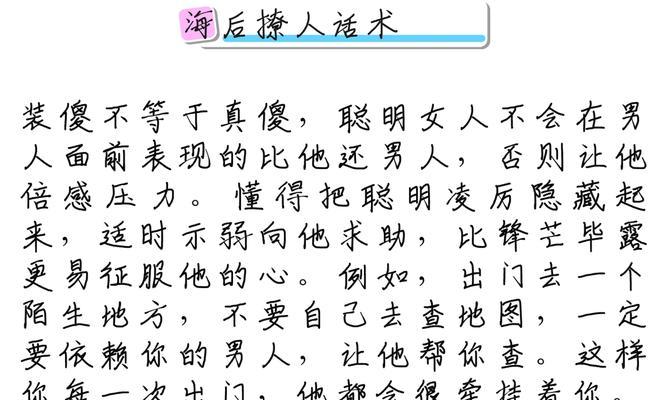 海后撩人话术
装傻不等于真傻，聪明女人不会在男
人面前表现的比他还男人，否则让他
倍感压力。懂得把聪明凌厉隐藏起
来，适时示弱向他求助，比锋芒毕露
更易征服他的心。例如，出门去一个
陌生地方，不要自己去查地图，一定
要依赖你的男人，让他帮你查。这样
你每一次出门，他都会很牵挂着你。